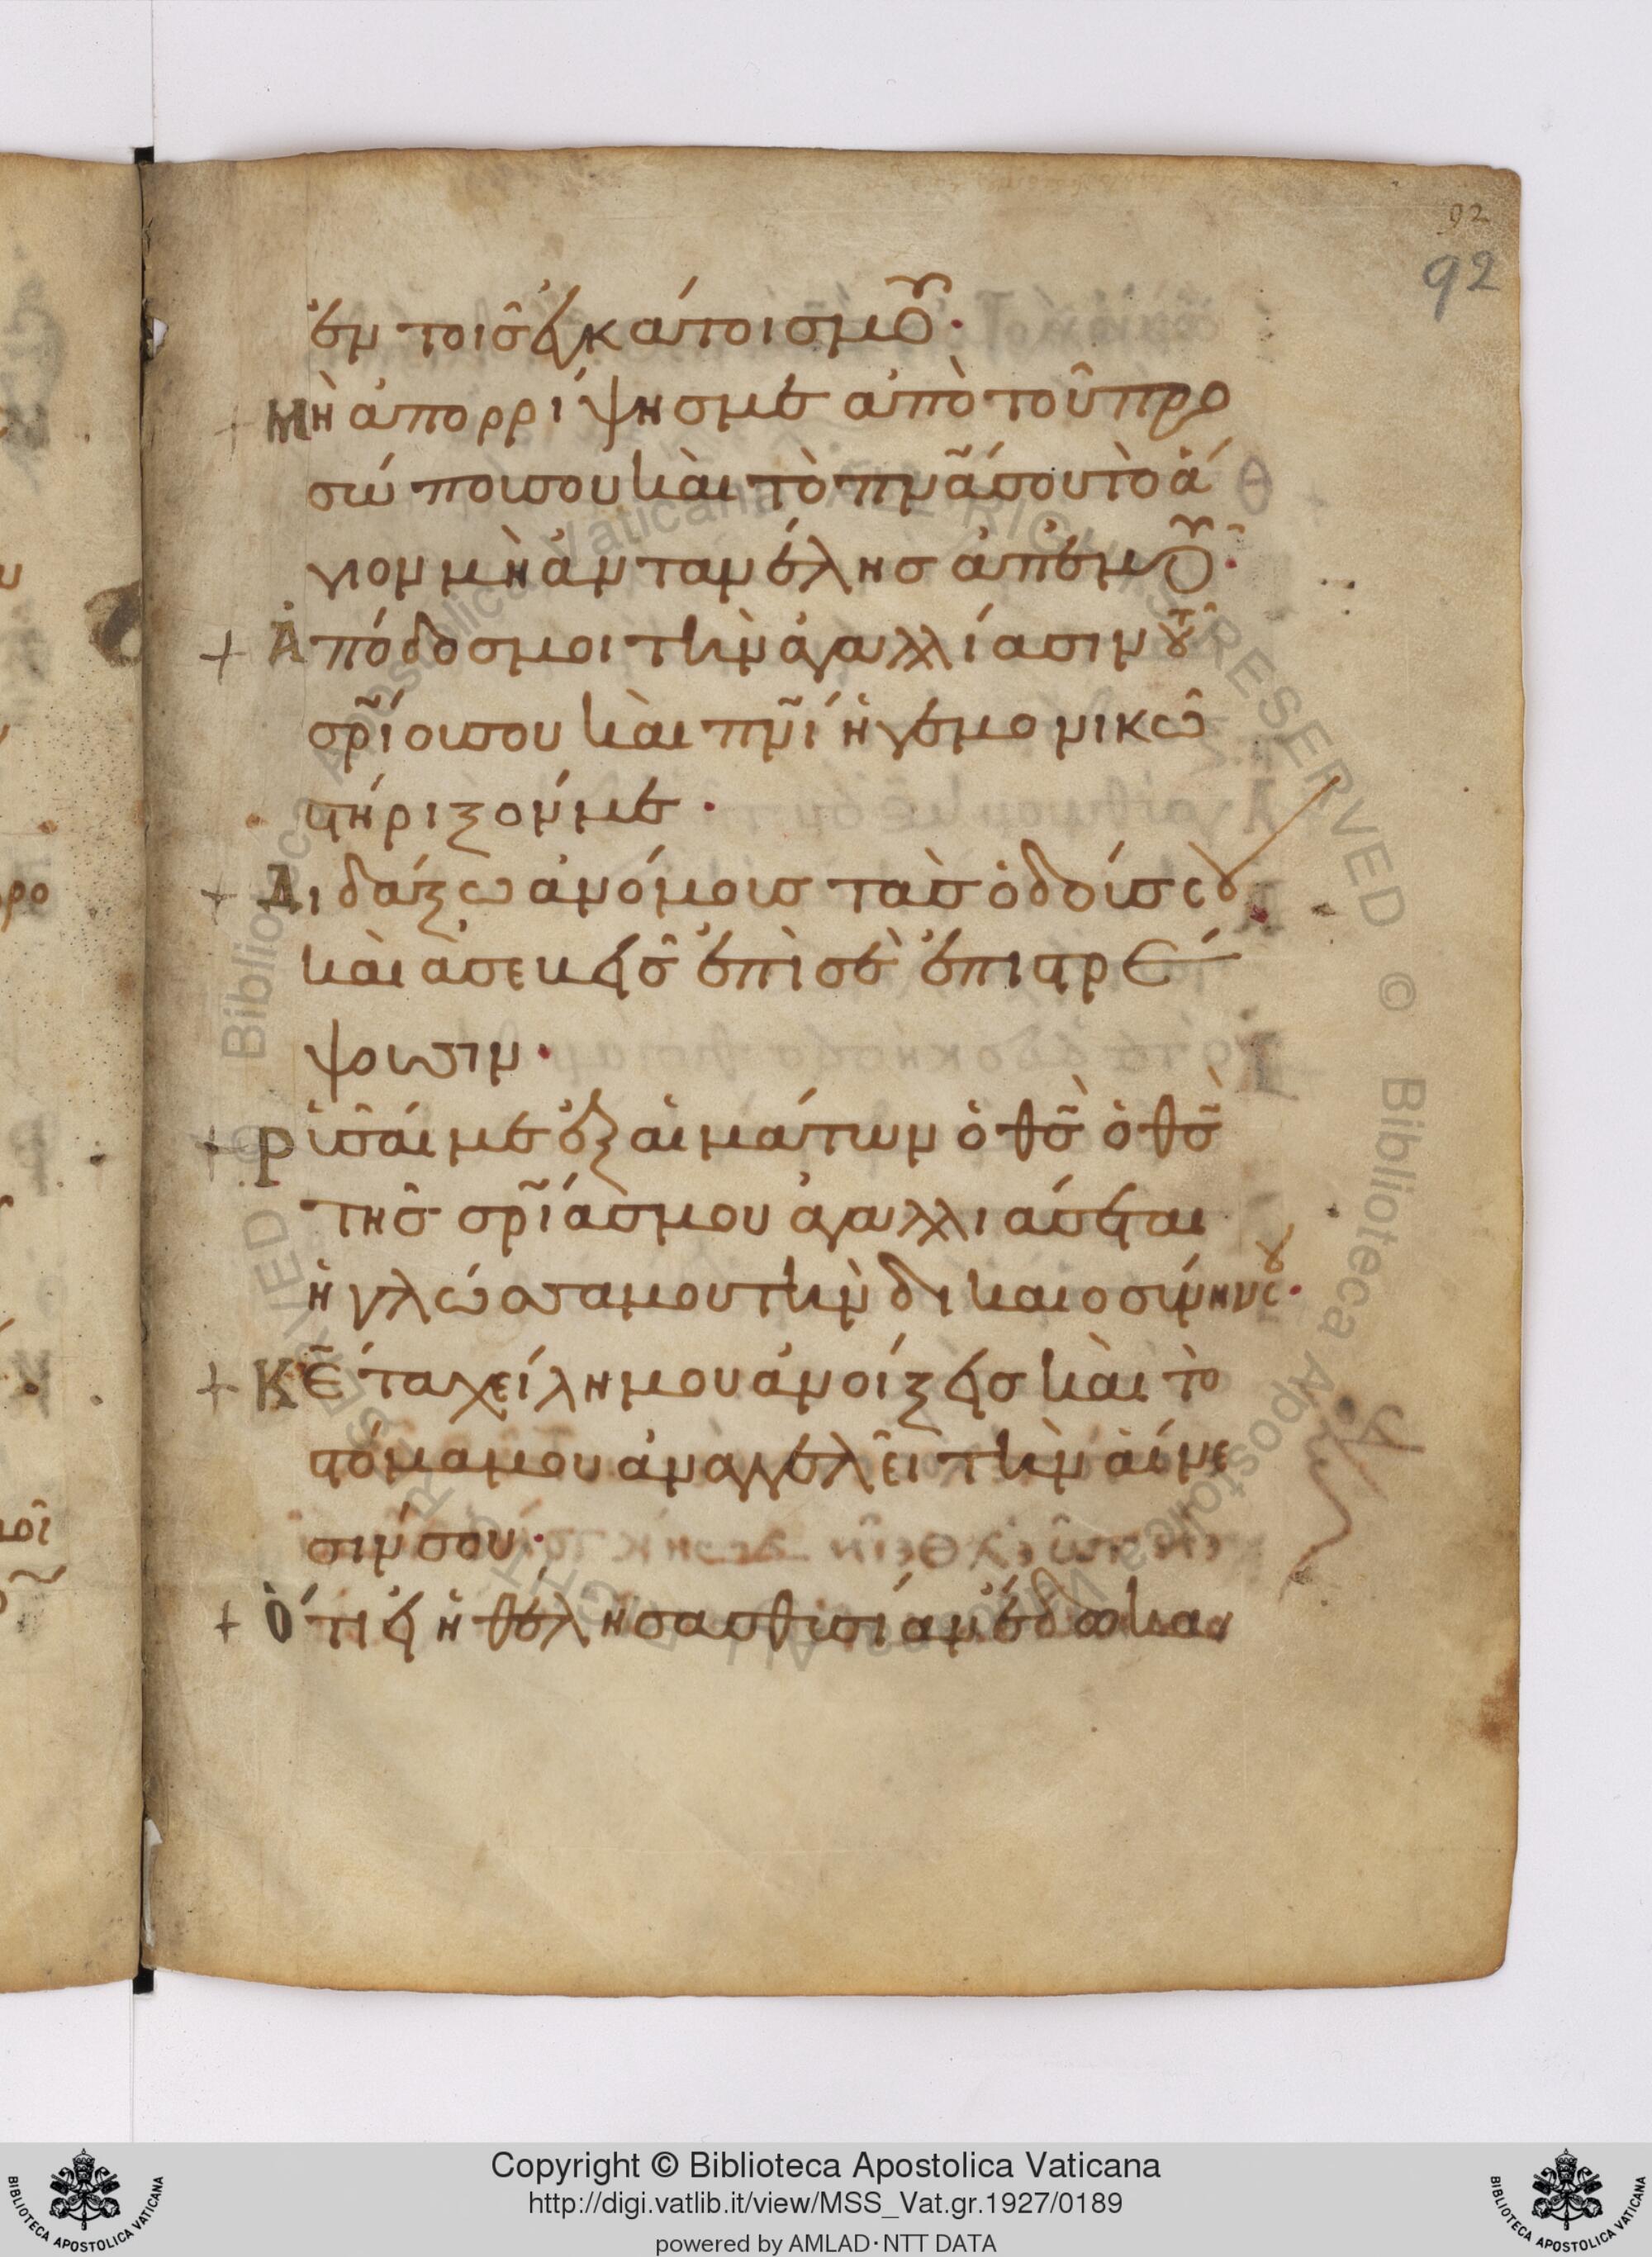 92
92
ἐν τοῖς ἐγκάτοις μου.
Μὴ ἀπορρίψης με ἀπὸ τοῦ προ
σώποισου καὶ τὸ πν̅ασου τὸ ἅ
γιον μὴ ἀντανέλης ἀπ' ἐμοῦ.
Ἀπόδος μοι τὴν ἀγαλλίασιν τοῦ
σρ̅ίοισου καὶ πν̅ι ἡγεμονικῶ
στήριξόν με.
Διδάξω ἀνόμοις τὰς ὁδούς σου
καὶ ἀσεβεῖς ἐπὶ σὲ ἐπιστρέ
ψουσιν.
Ρῦσαί με ἐξ αἱμάτων ὁ θς̅ ὁ θς̅
τῆς σρ̅ίας μου ἀγαλλιάσεται
ἡ γλῶσσα μου τὴν δικαιοσύνην σου.
Κε̅ τα χείλη μου ἀνοίξεις καὶ τὸ
στόμα μου ἀναγγελεῖ τὴν αἴνε
σίν σου.
Ὅτι εἰ ἠθέλησας θυσίαν ἔδωκα
Copyright © Biblioteca Apostolica Vaticana
http://digi.vatlib.it/view/MSS_Vat.gr.1927/0189
powered by AMLAD·NTT DATA
BIBLIOTECA APOSTOLICA VATICANA
BIBLIOTECA APOSTOLICA VATICANA